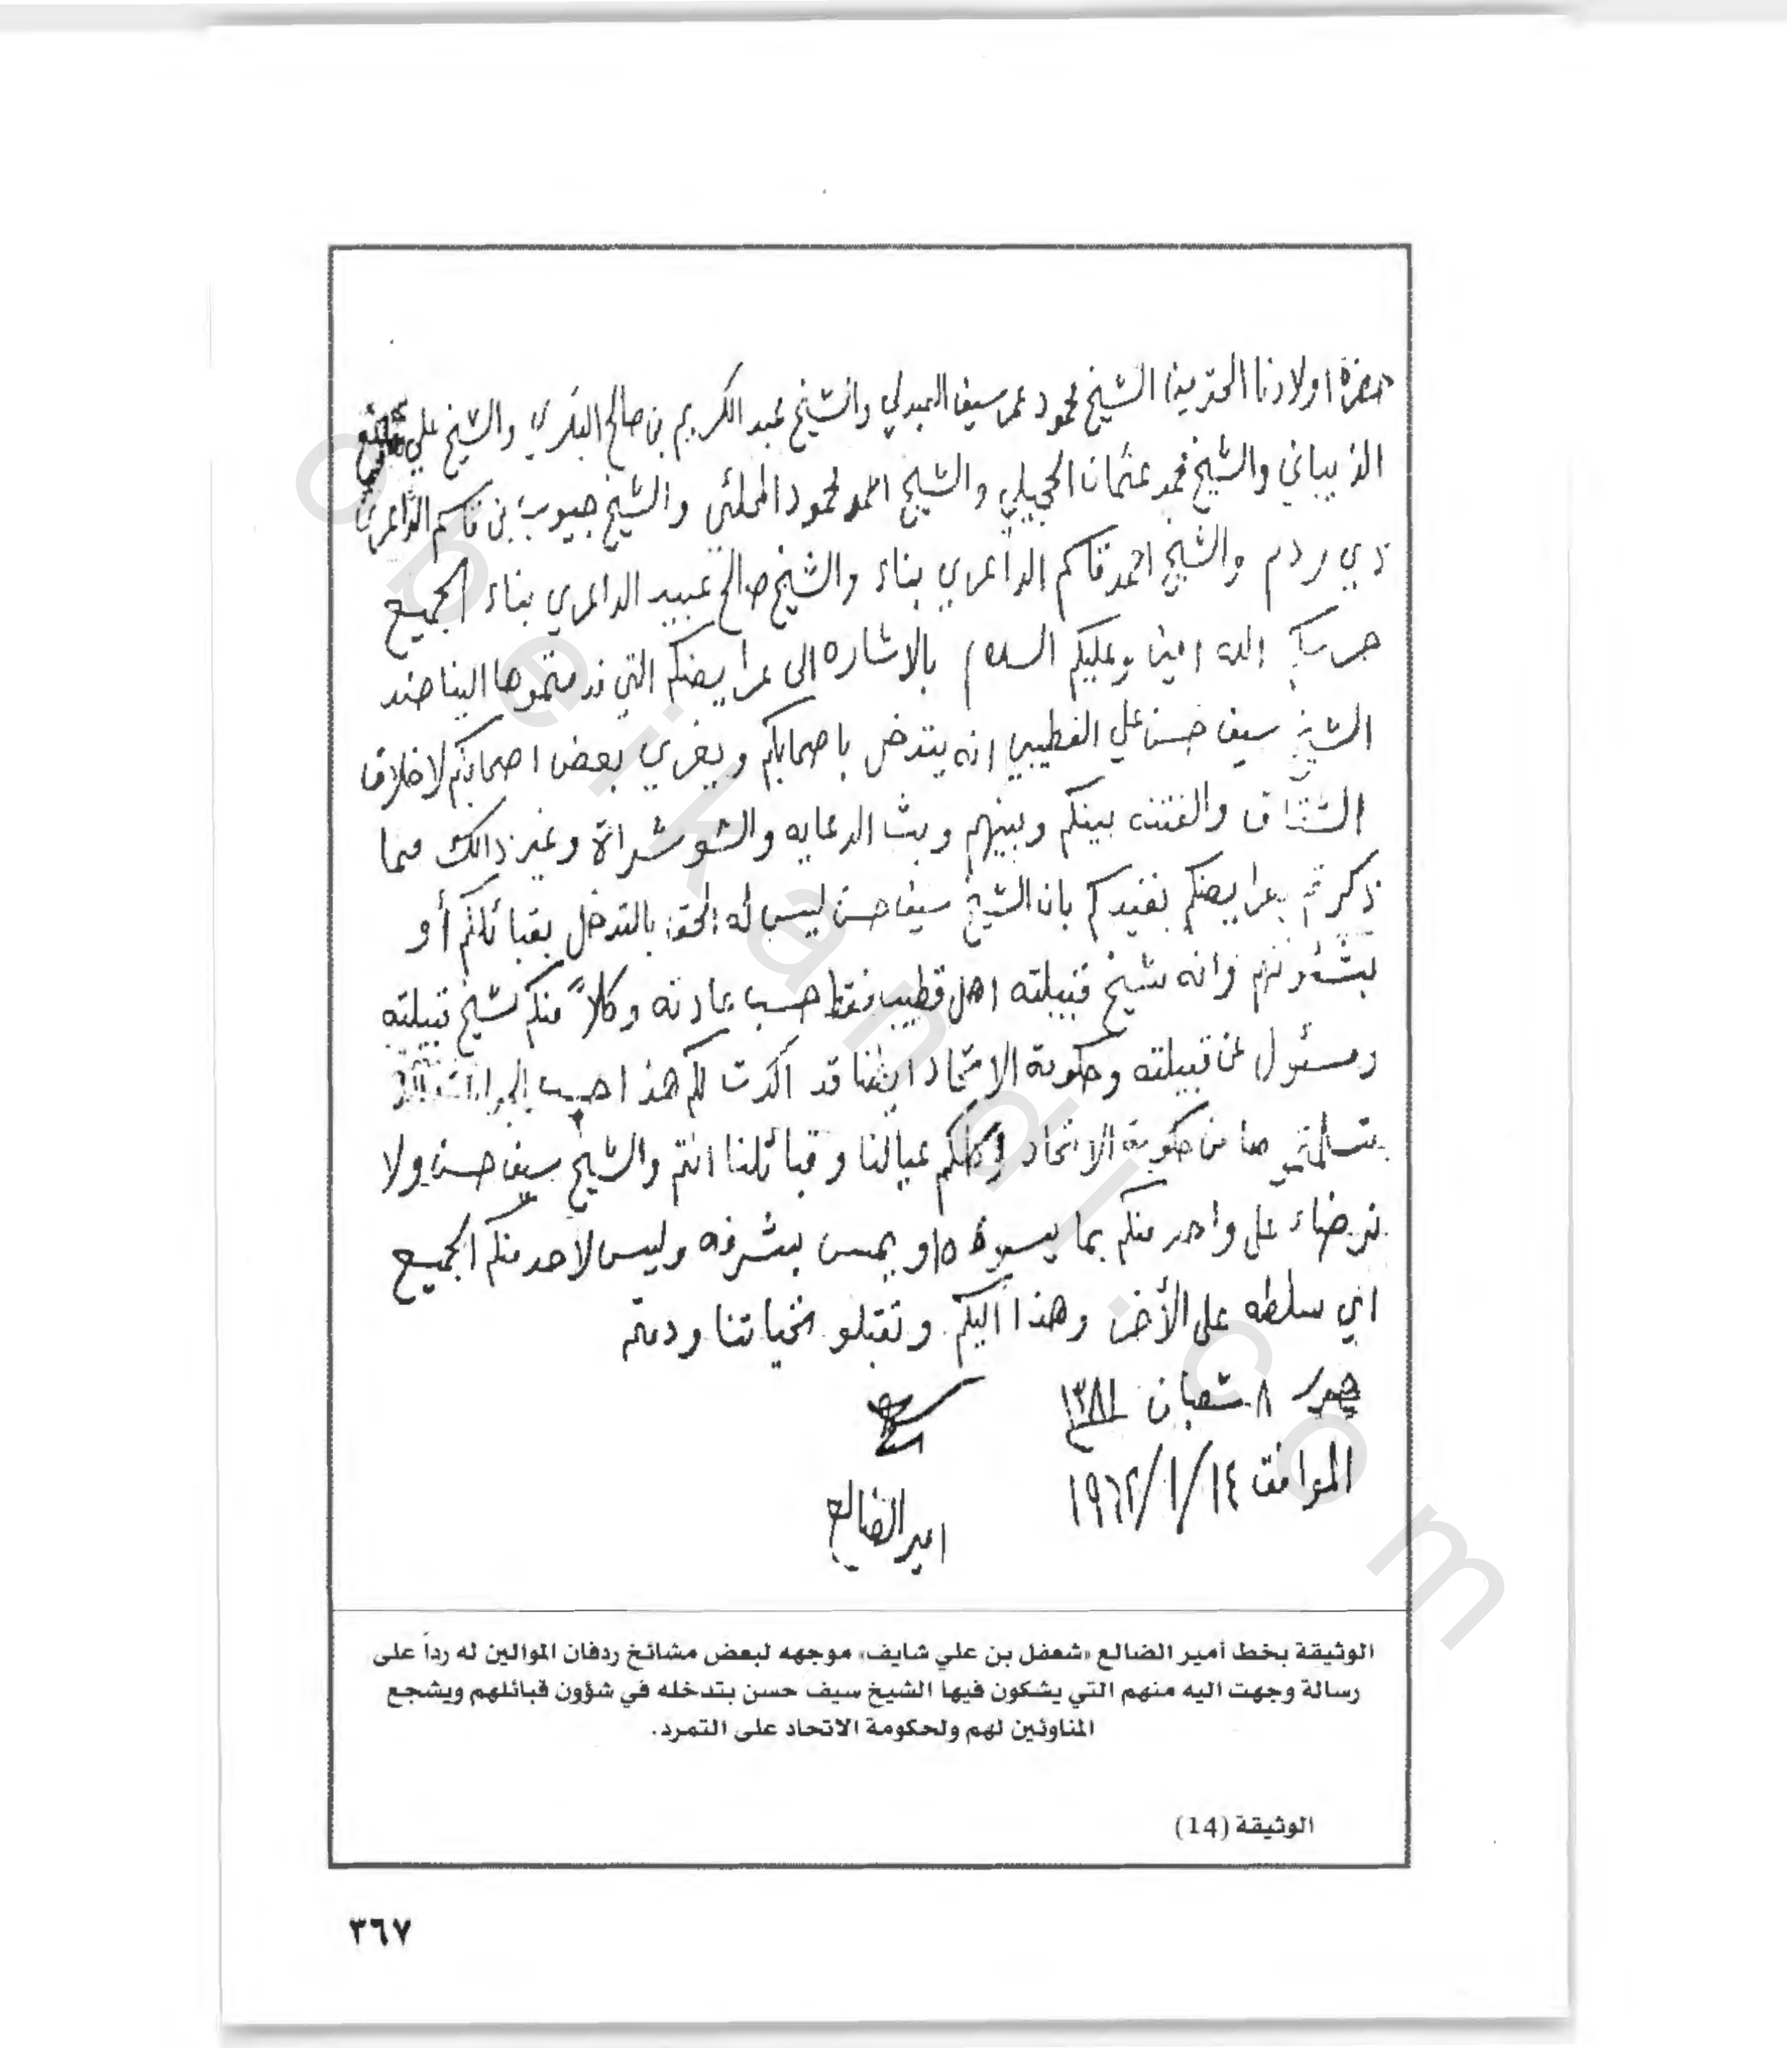 حضرة اولادنا المحترمين الشيخ محمود عمر سيف العبدلي والشيخ عبد الكريم بن صالح البكري والشيخ علي
الذيباني والشيخ محمد عثمان الحجيلي والشيخ احمد محمود المحلئي والشيخ جيوب بن قاسم الداعري
ذي ردم والشيخ احمد قاسم الداعري بناء والشيخ صالح عبيد الداعري بناء الجميع
حرسكم الله امين وعليكم السلام بالاشاره الى عرايضكم التي قدمتموها الينا ضد
الشيخ سيف حسن علي القطيبي انه يتدخل باصحابكم ويغري بعض اصحابكم لاخلاق
الشقاق والفتنه بينكم وبينهم وبث الدعايه والشوشراة وغير ذالك مما
ذكرتم بعرايضكم نفيدكم بان الشيخ سيف حسن ليس له الحق بالتدخل بقبائلكم أو
بشئونهم وانه شيخ قبيلته اهل قطيب فقط حسب عادته وكلاً منكم شيخ قبيلته
ومسئول عن قبيلته وحكومة الاتحاد ايضا قد اكدت لكم هذا حسب
من حكومة الاتحاد وكلكم عيالنا وقبائلنا انتم والشيخ سيف حسن ولا
نرضاء على واحد منكم بما يسوءه او يمس بشرفه وليس لاحد منكم الجميع
اي سلطه على الأخر وهذا اليكم وتقبلو تحياتنا ودمتم
٨ شعبان ١٣٨١
الموافق ١٤/١/١٩٦٢
امير الضالع
الوثيقة بخط أمير الضالع «شعفل بن علي شايف» موجهه لبعض مشائخ ردفان الموالين له رداً على
رسالة وجهت اليه منهم التي يشكون فيها الشيخ سيف حسن بتدخله في شؤون قبائلهم ويشجع
المناوئين لهم ولحكومة الاتحاد على التمرد.
الوثيقة (14)
٣٦٧
obeikandl.com